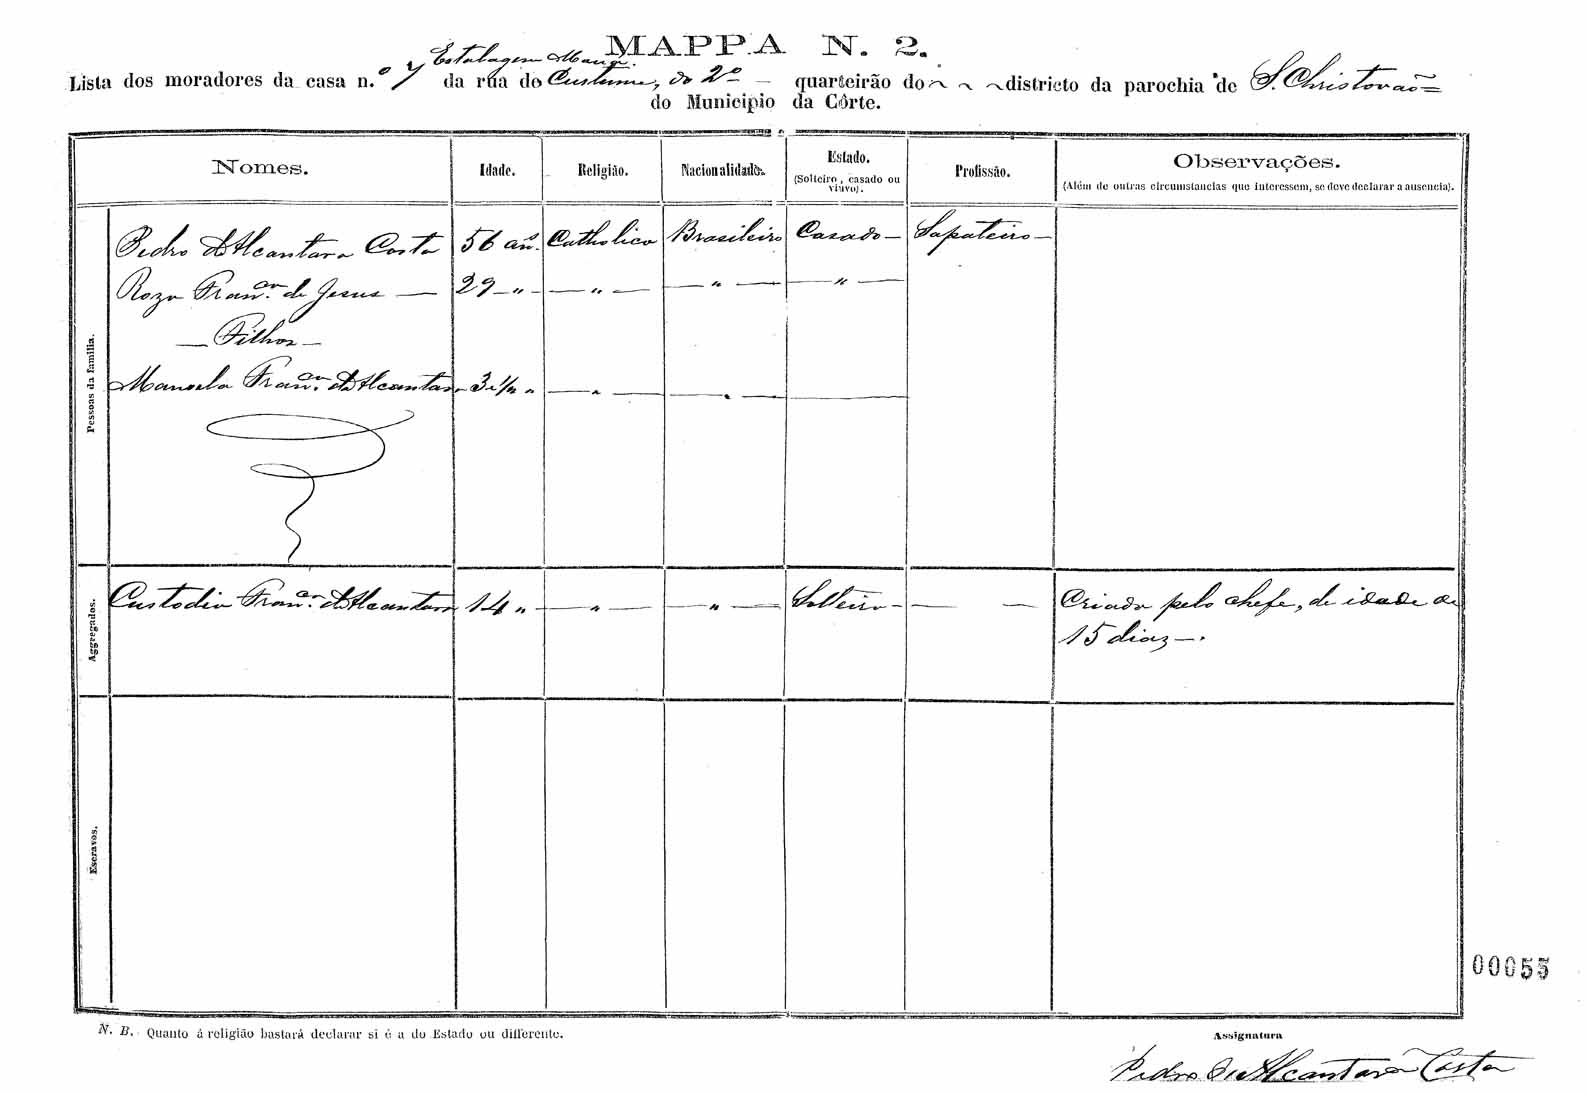 MAPPA N. 2.
Estalagem Mang.
Lista dos moradores da casa n.º 7 da rua do Custume, do 2º — quarteirão do ~ ~ ~ districto da parochia de S. Christovão =
do Municipio da Côrte.
Nomes. Idade. Religião. Nacionalidade. Estado. Profissão. Observações.
(Solteiro, casado ou viuvo). (Além de outras circumstancias que interessem, se deve declarar a ausencia).
Pessoas da familia.
Pedro d'Alcantara Costa 56 añ. Catholico Brasileiro Casado — Sapateiro —
Roza Fran.ca de Jesus — 29 — " — — " — — " — — " —
— Filhos —
Manoela Fran.ca d'Alcantara 3 1/2 " — " — — " — —
Aggregados.
Custodio Fran.co d'Alcantara 14 " — " — — " — Solteiro — — — Criado pelo chefe, de idade de
15 diaz —.
Escravos.
00055
N. B. Quanto á religião bastará declarar si é a do Estado ou differente.
Assignatura
Pedro de Alcantara Costa